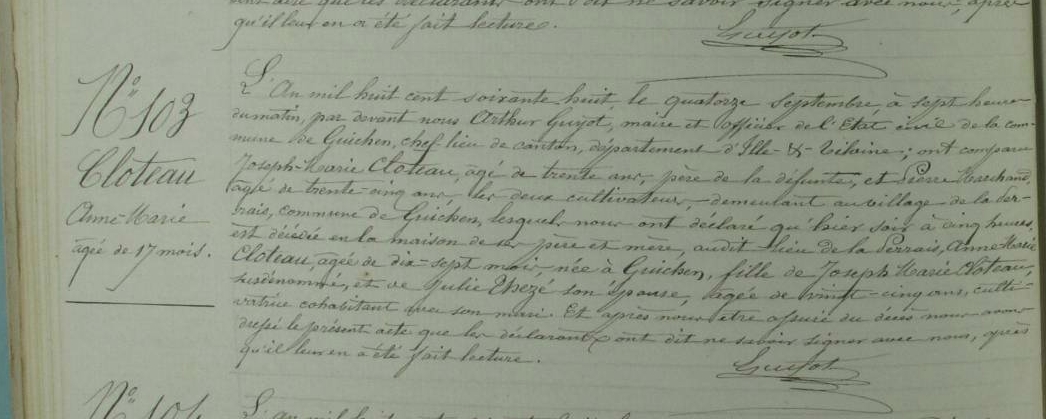 sentaire que les déclarants ont dit ne savoir signer avec nous, après
qu'il leur en a été fait lecture.
Guyot
N° 103
Cloteau
Anne-Marie
agée de 17 mois.
L'An mil huit cent soixante huit, le quatorze septembre à sept heures
du matin, par devant nous Arthur Guyot, maire et officier de l'Etat civil de la com-
mune de Guichen, chef lieu de canton, département d'Ille-&-Vilaine; ont comparu
Joseph-Marie Cloteau, agé de trente ans, père de la défunte, et Pierre Marchand,
agé de trente-cinq ans, les deux cultivateurs, demeurant au village de la Ser-
rais, commune de Guichen, lesquels nous ont déclaré qu'hier soir à cinq heures,
est décédée en la maison de ses père et mère, audit lieu de la Serrais, Anne Marie
Cloteau, agée de dix-sept mois, née à Guichen, fille de Joseph Marie Cloteau,
susdénommé, et de Julie Thezé son épouse, agée de vingt-cinq ans, culti-
vatrice cohabitant avec son mari. Et après nous être assuré du décès nous avons
dressé le présent acte que les déclarants ont dit ne savoir signer avec nous, après
qu'il leur en a été fait lecture.
Guyot
N° 104
L'an mil huit cent